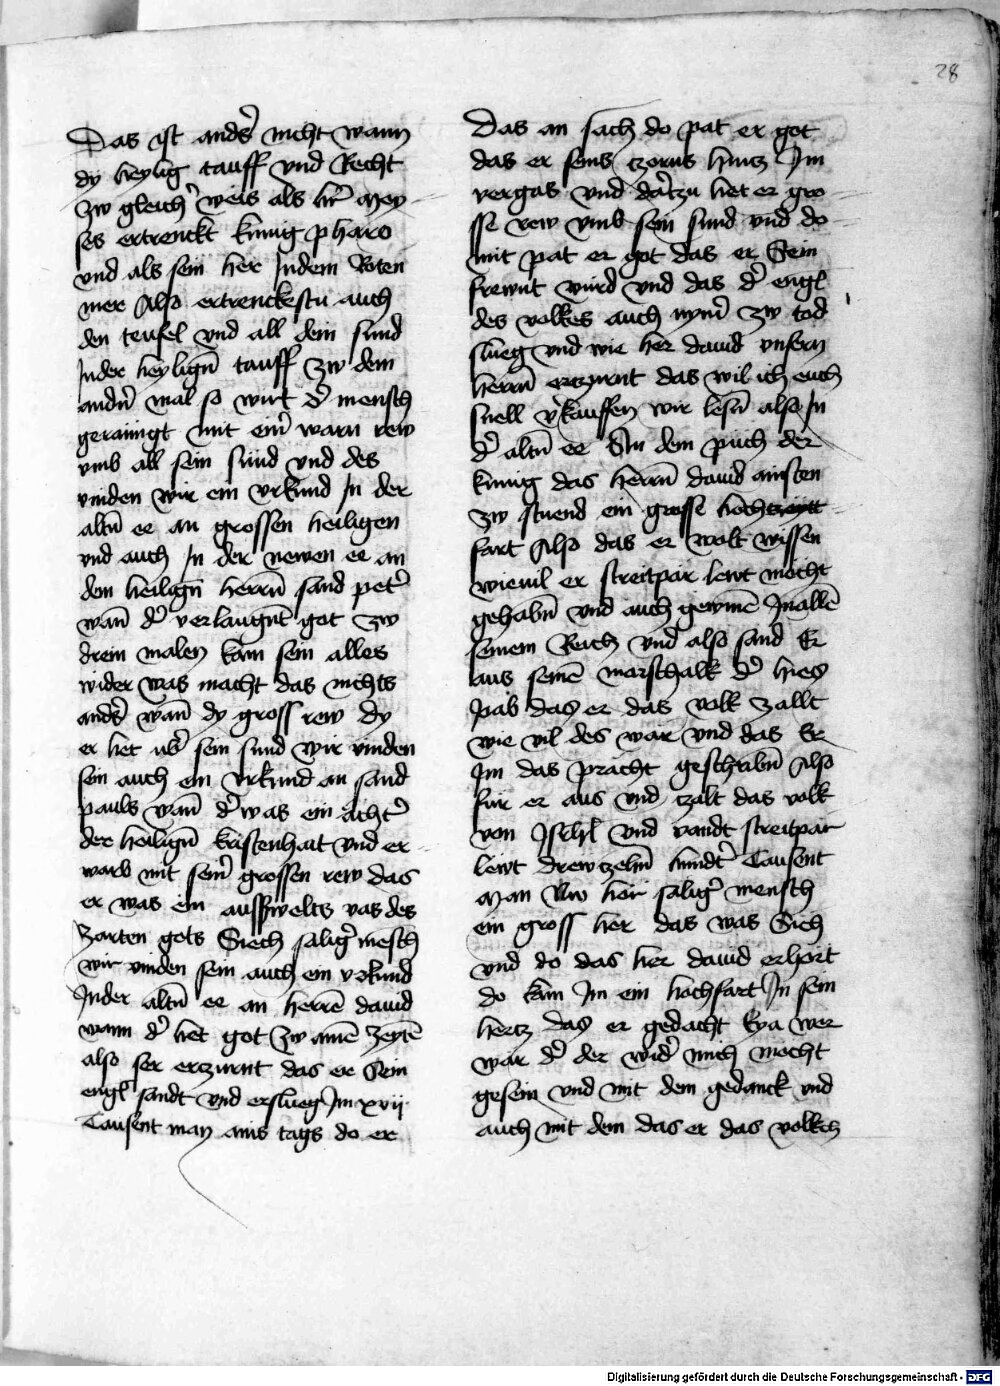 28
Das ist anders nicht wann
dy heylig tauff vnd Recht
zw gleicher weis als her Moy
ses ertrenckt kunig pharo
vnd als sein her Indem Roten
mer Also ertrenckestu auch
den teufel vnd all dein sund
Inder heyligen tauff zw dem
andern mal so wirt der mensch
geraingt mit einer warn rew
vmb all sein sund vnd des
vinden wir ein vrkund In der
alten ee an grossen heiligen
vnd auch In der newen ee an
dem heiligen herren sand peter
wann der verlaugnt got zw
drein malen kam sein alles
wider was macht das nichts
anders wann dy gross rew dy
er het vber sein sund wir vinden
sein auch ein vrkund an sand
pauls wann der was ein achter
der heiligen kristenhait vnd er
warb mit seiner grossen rew das
er was ein ausserwelts vas des
zarten gots Siech saliger mensch
wir vinden sein auch ein vrkund
Inder alten ee an herren dauid
wann der het got zw ainen zeyten
also ser erczurnt das er Sein
engl sandt vnd erslueg Im xvii
Tausent man ains tags do er
Das an sach do pat er got
das er seins tzorns hincz Im
vergas vnd dartzu het er gro
sse rew vmb sein sund vnd do
mit pat er got das er Sein
frewnt wurd vnd das der engl
des volkes auch nymer zw tod
slueg vnd wie her dauid vnsern
herren erczurnt das wil ich euch
snell verkauffen wir lesen also In
der alten ee An dem puch der
kunig das herren dauid ainsten
zw stuend ein grosse hochtzeytt
fart Also das er wolt wissen
wieuil er streitpar lewt mocht
gehaben vnd auch gewinnen Inallen
seinem Reich vnd also sand Er
aus seinen marschalk der hies
Joab das er das volk zallt
wie vil des war vnd das Er
Im das pracht geschriben Also
fur er aus vnd tzalt das volk
von Israhel vnd vandt streitpar
lewt drewzehen hundert Tausent
Man Nw hor saliger mensch
ein gross her das was Sich
vnd do das her dauid erhort
do kam Im ein hochfart In sein
hertz das er gedacht Eya wer
war der der wider mich mocht
gesein vnd mit dem gedanck vnd
auch mit dem das er das volkch
Digitalisierung gefördert durch die Deutsche Forschungsgemeinschaft - DFG